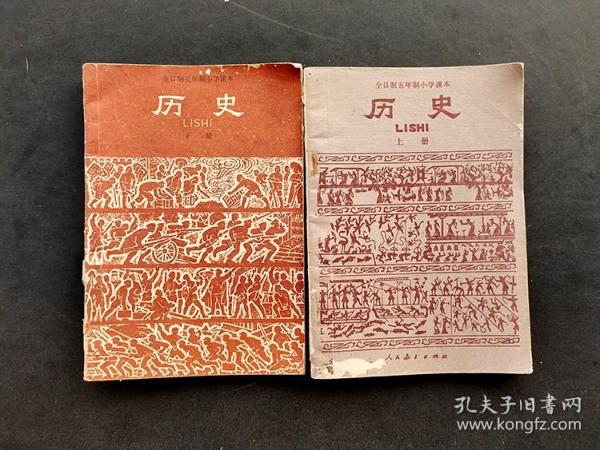 全日制五年制小学课本
历史
LISHI
下册
全日制五年制小学课本
历史
LISHI
上册
人民教育出版社
孔夫子旧书网
www.kongfz.com